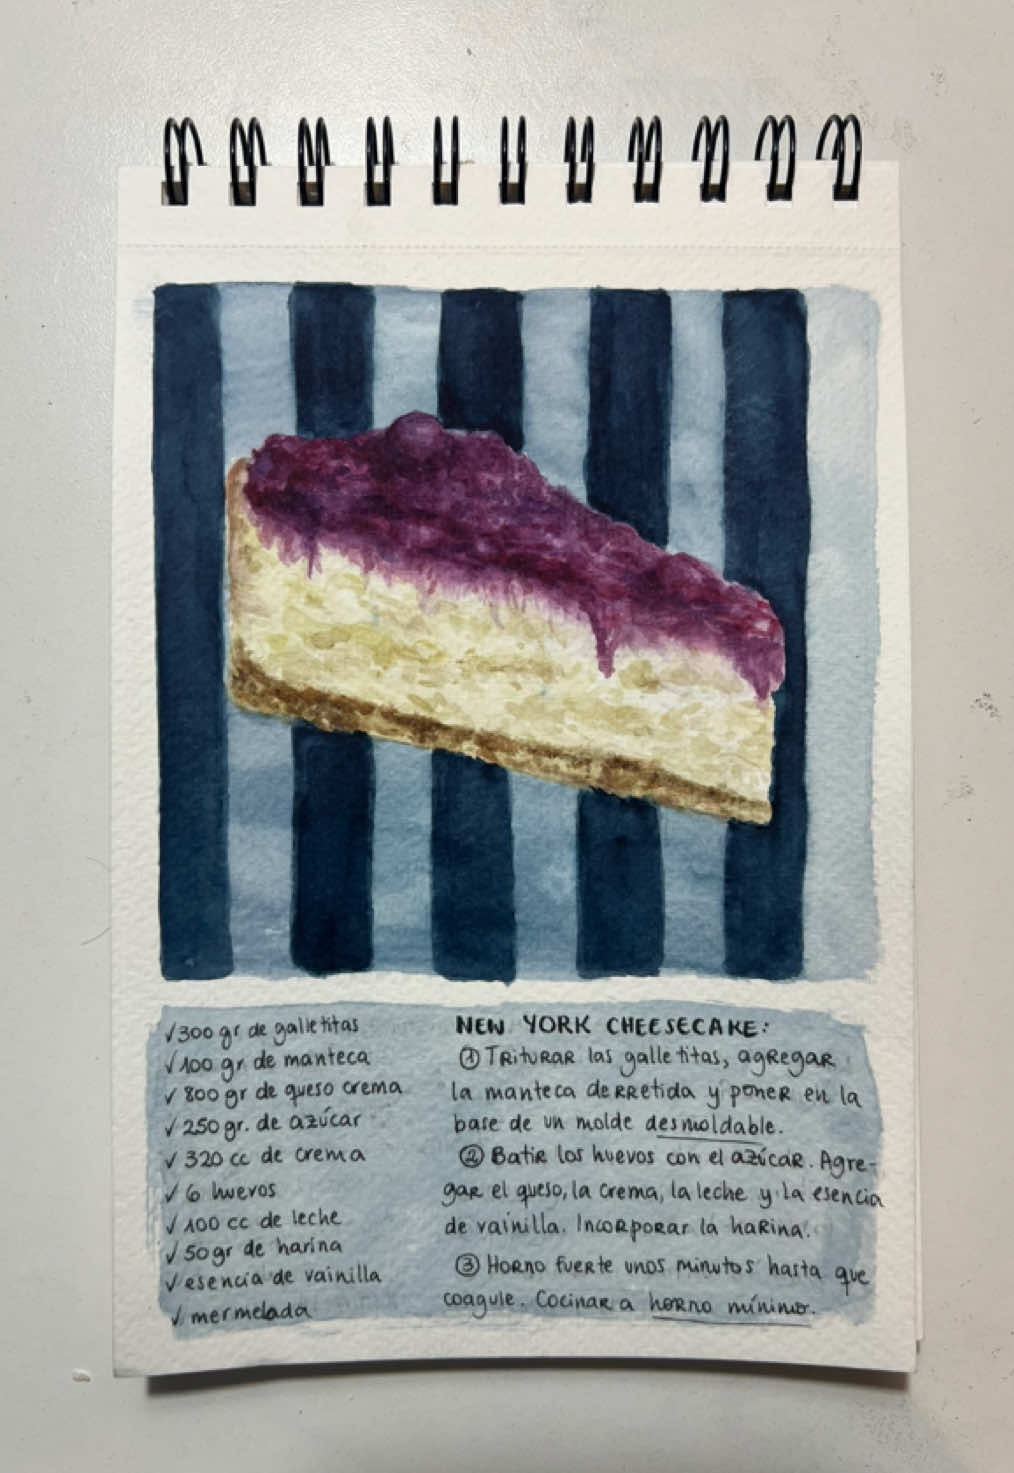 ✓300 gr de galletitas
✓100 gr. de manteca
✓ 800 gr de queso crema
✓ 250 gr. de azúcar
✓ 320 cc de crema
✓ 6 huevos
✓ 100 cc de leche
✓ 50gr de harina
✓ esencia de vainilla
✓ mermelada
NEW YORK CHEESECAKE:
① TRITURAR las galletitas, agREgaR
la manteca deRRetida y poneR en la
base de un molde desmoldable.
② BatiR los huevos con el azúcaR. AgRe-
gaR el queso, la crema, la leche y la esencia
de vainilla. IncoRpoRaR la haRina.
③ HoRno fueRte unos minutos hasta que
coagule. CocinaR a hoRno mínimo.